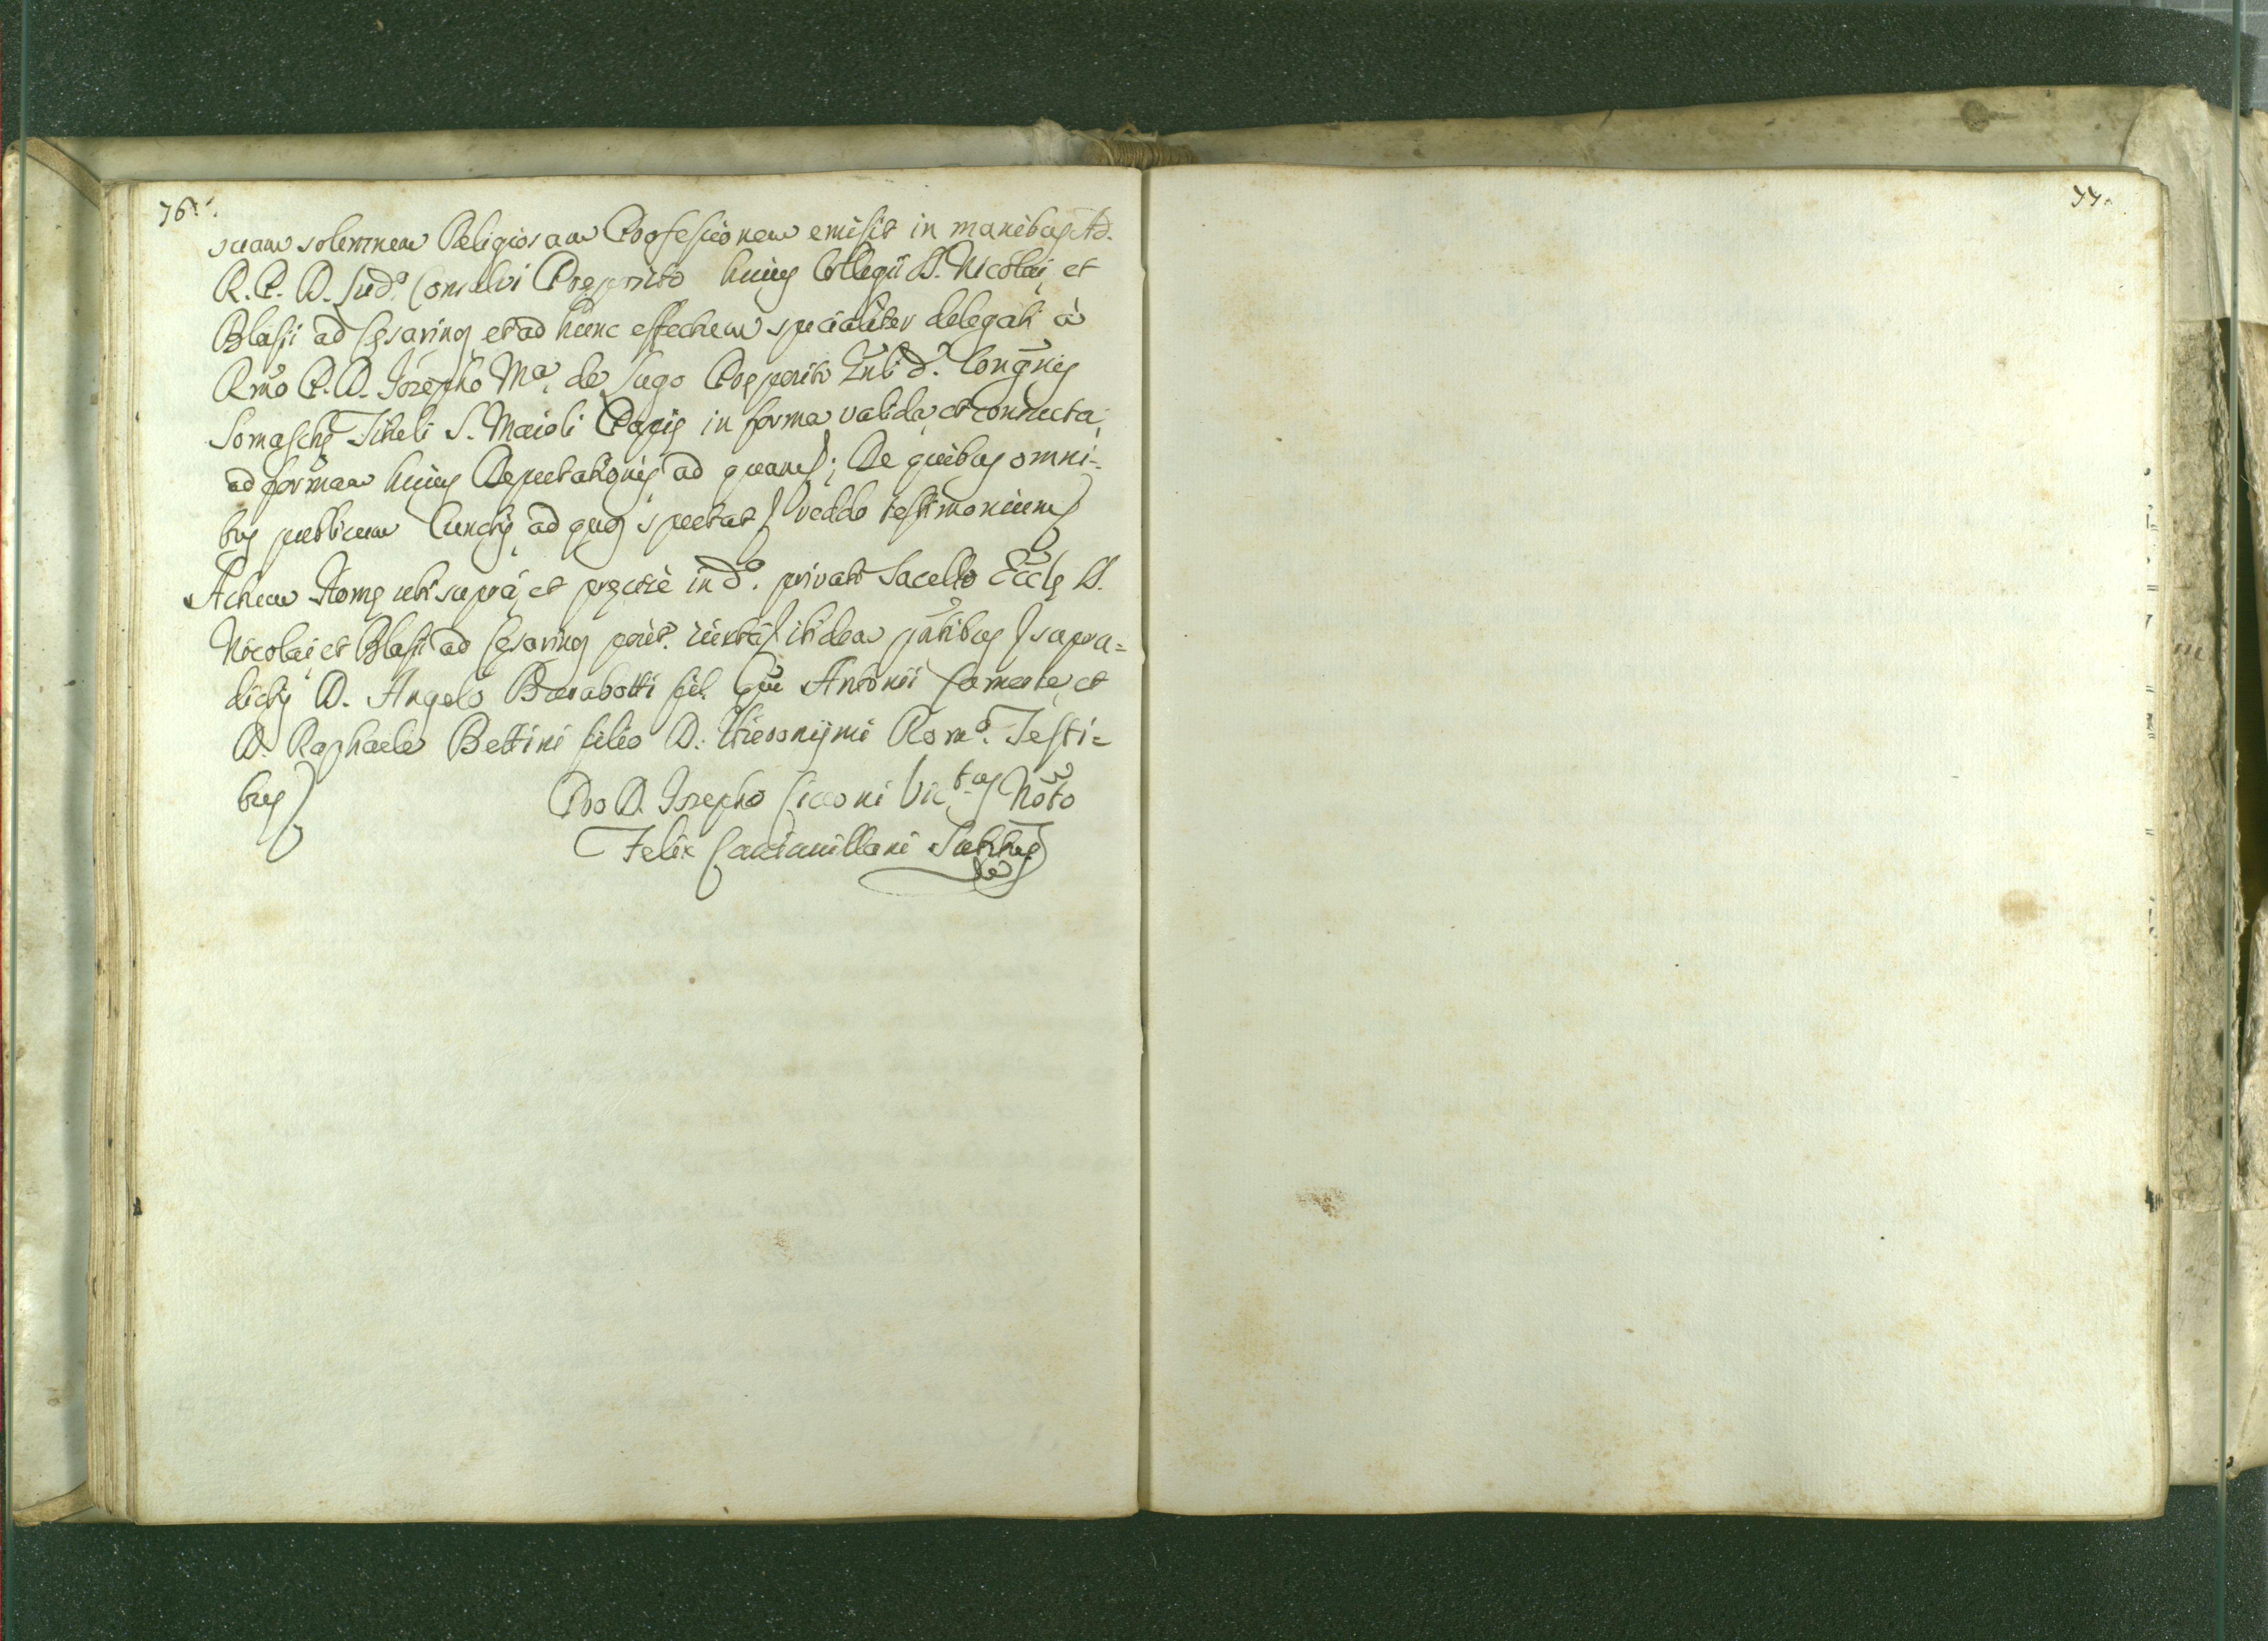 76.
suam solemnem Religiosam Professionem emisit in manibus Ad.
R. P. D. Lud.º Consalvi Preposito huius Collegii SS. Nicolai, et
Blasii ad Cesarinos et ad hunc effectum specialiter delegati à
Rmo P. D. Josepho Mª de Lugo Preposito Congnis
Somasche Tituli S. Maioli Papie in forma valida, et consueta,
ad formam huius Deputationis ad quam; De quibus omni=
bus publicum cunctis ad quos spectat reddo testimonium
Actum Rome ubi supra, et precise in dº. privato Sacello Eccle SS.
Nicolai, et Blasii ad Cesarinos posit. iuxta itidem pntibus supra=
dictis D. Angelo Barabotti fil. qm Antonii Camerte, et
D. Raphaele Bettini filio D. Hieronijmi Romº. Testi=
bus
Pro D. Josepho Cicconi Vic.tus Noto
Felix Substus
77.